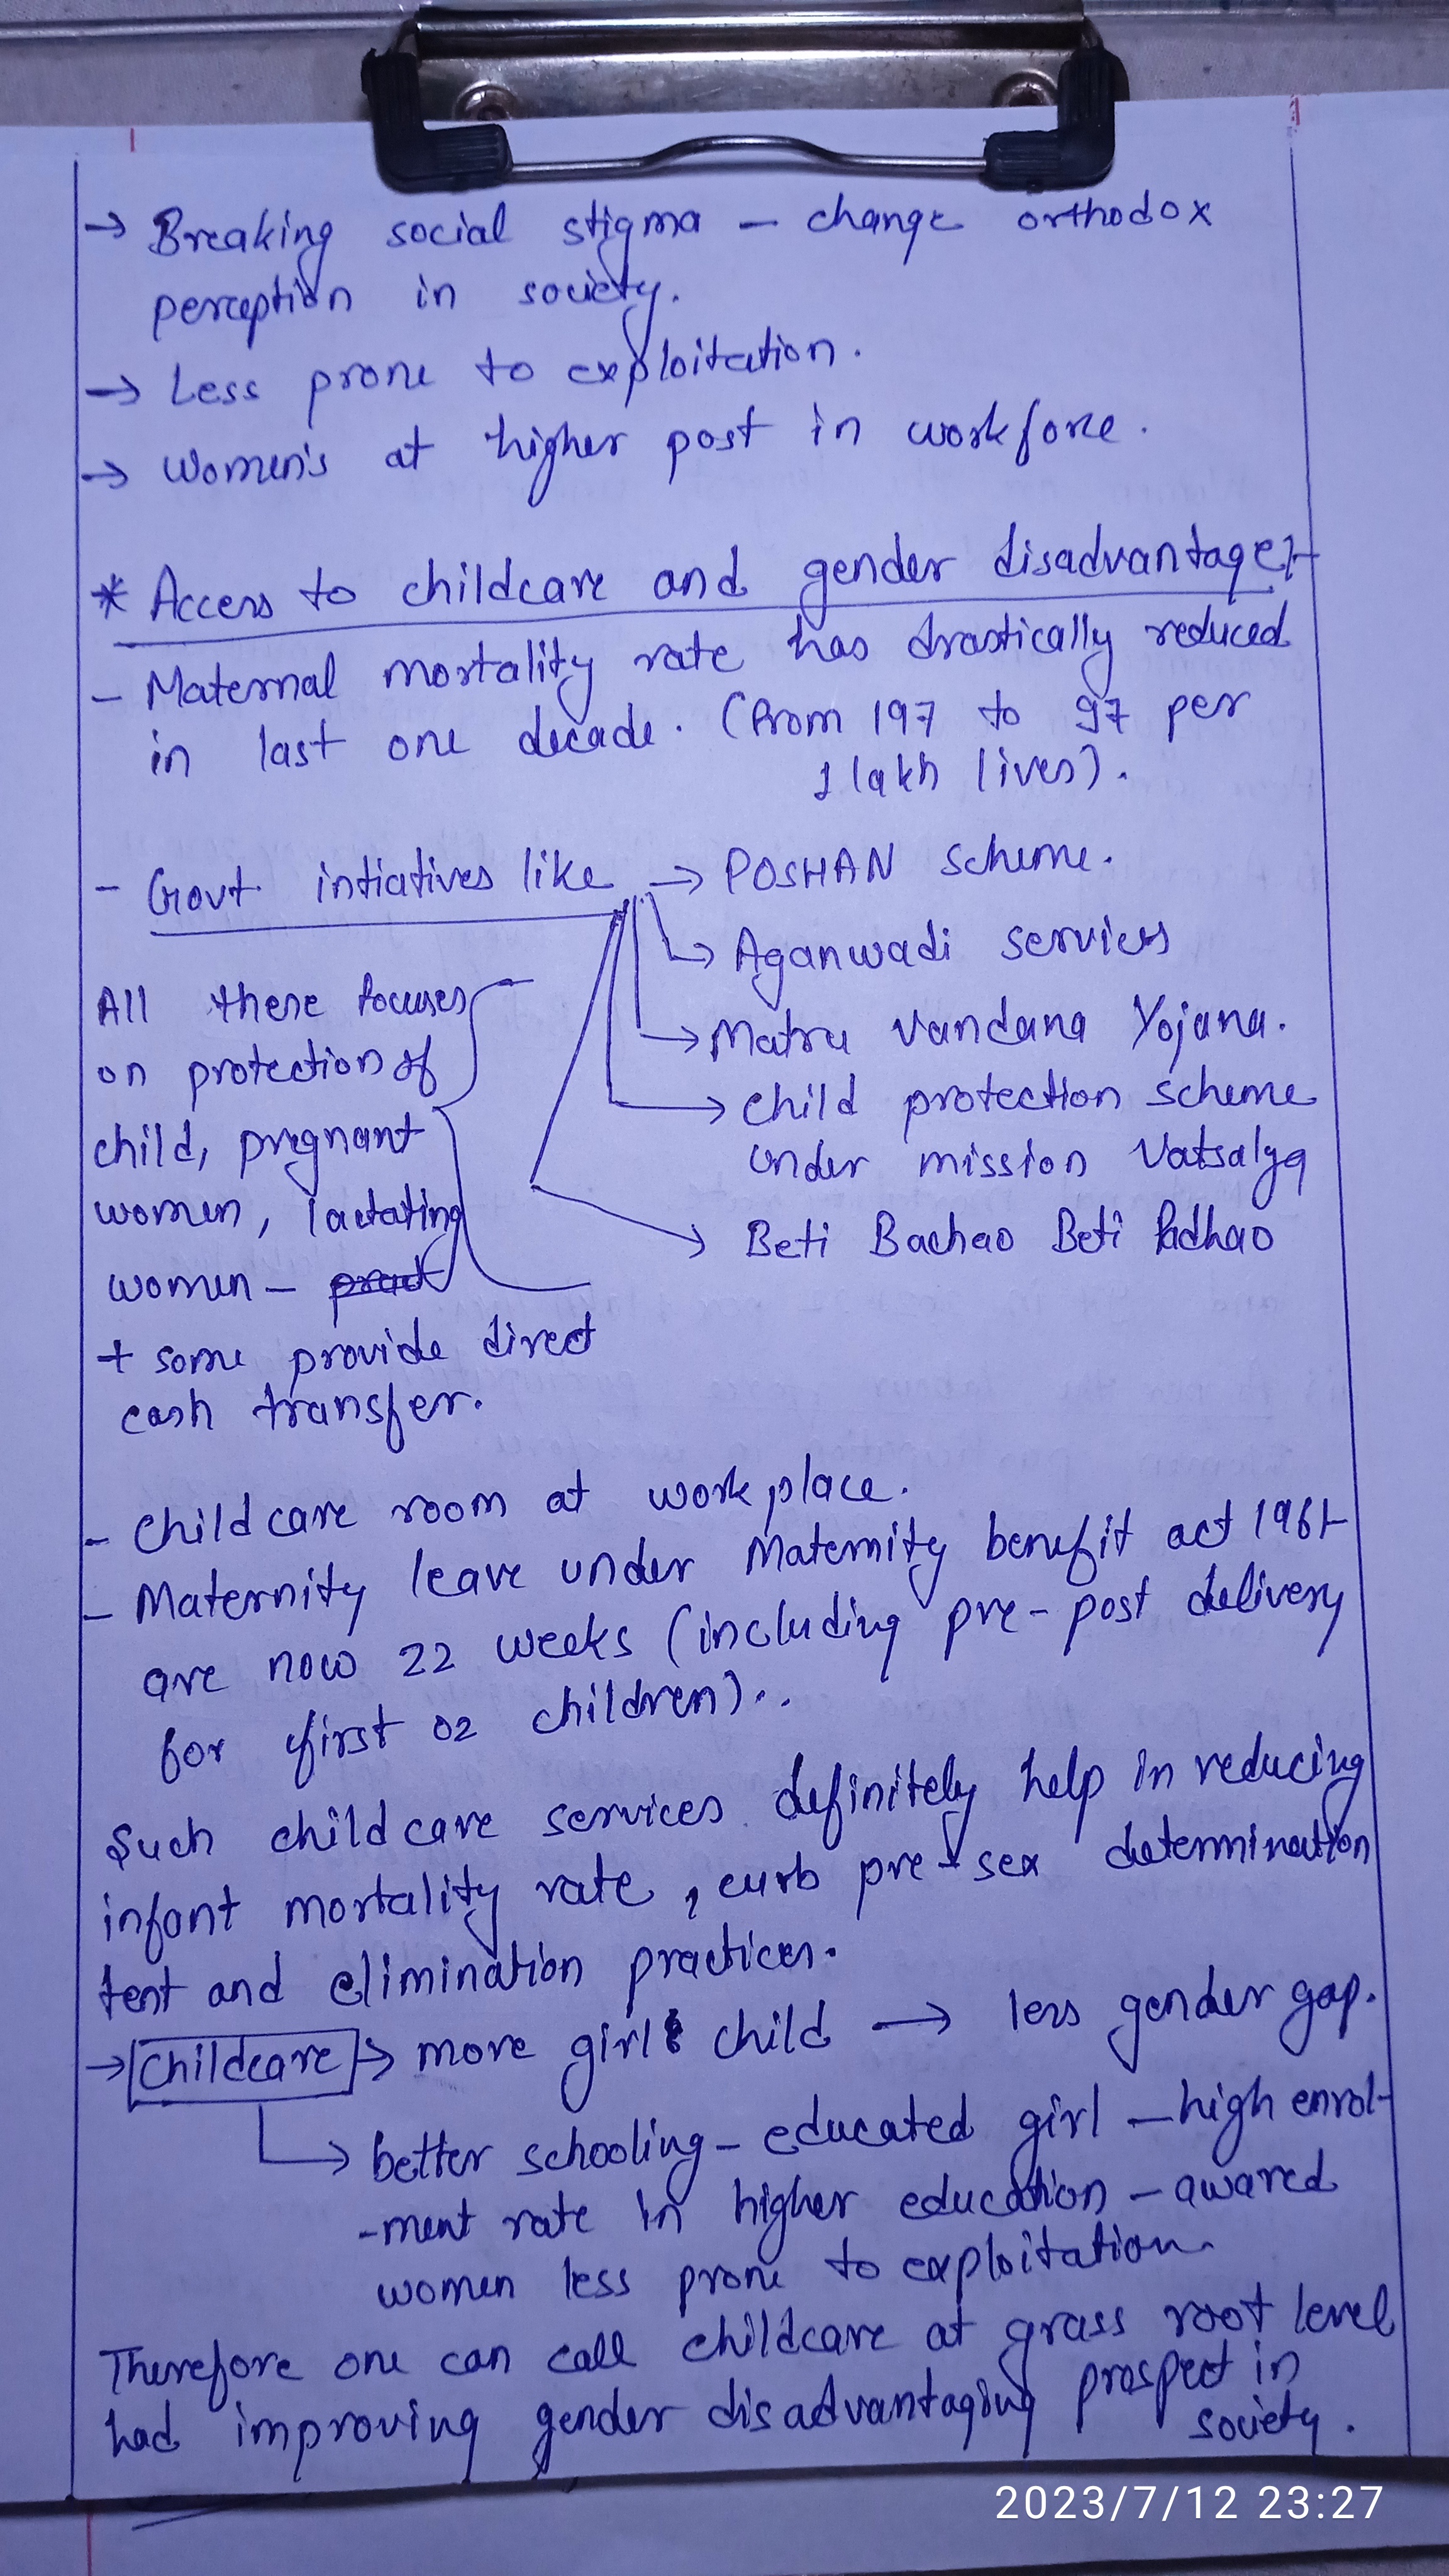 → Breaking social stigma – change orthodox
perception in society.
→ Less prone to exploitation.
→ Women's at higher post in workforce.
* Access to childcare and gender disadvantage:-
- Maternal mortality rate has drastically reduced
in last one decade. (From 197 to 97 per
1 lakh lives).
- Govt. intiatives like → POSHAN scheme.
→ Aganwadi services
→ Matru Vandana Yojana.
→ Child protection scheme
under mission Vatsalya
→ Beti Bachao Beti Padhao
All these focuses
on protection of
child, pregnant
women, lactating
women –
+ some provide direct
cash transfer.
- Childcare room at workplace.
- Maternity leave under Maternity benefit act 1961-
are now 22 weeks (including pre-post delivery
for first 02 children)..
Such childcare services definitely help in reducing
infant mortality rate, curb pre-sex determination
test and elimination practices.
→ Childcare → more girl child → less gender gap.
→ better schooling – educated girl – high enrol-
-ment rate in higher education – awared
women less prone to exploitation.
Therefore one can call childcare at grass root level
had improving gender disadvantaging prospect in
society.
2023/7/12 23:27